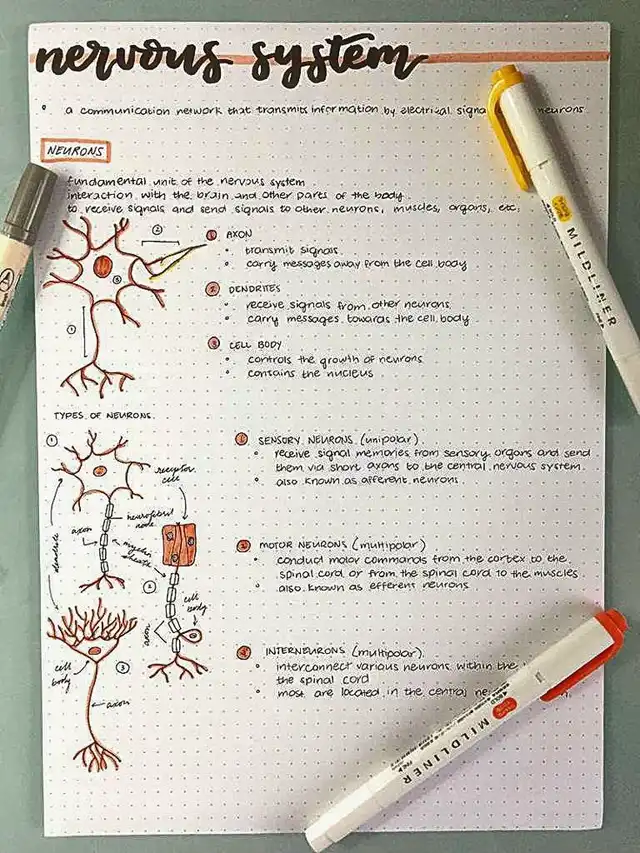 nervous system
• a communication network that transmits information by electrical signa neurons
NEURONS
fundamental unit of the nervous system
interaction with the brain and other parts of the body
to receive signals and send signals to other neurons, muscles, organs, etc.
1 AXON
• transmit signals
• carry messages away from the cell body
2 DENDRITES
• receive signals from other neurons
• carry messages towards the cell body
3 CELL BODY
• controls the growth of neurons
• contains the nucleus
2
3
1
TYPES OF NEURONS
1 SENSORY NEURONS (unipolar)
• receive signal memories from sensory organs and send
them via short axons to the central nervous system
• also known as afferent neurons
MOTOR NEURONS (multipolar)
• conduct motor commands from the cortex to the
spinal cord or from the spinal cord to the muscles
• also known as efferent neurons
INTERNEURONS (multipolar)
• interconnect various neurons within the
the spinal cord
• most are located in the central ne
1
receptor
cell
neurofibril
node
axon
myelin
sheath
dendrite
cell
body
axon
cell
body
3
axon
A
MILDLINER
MILDLINER